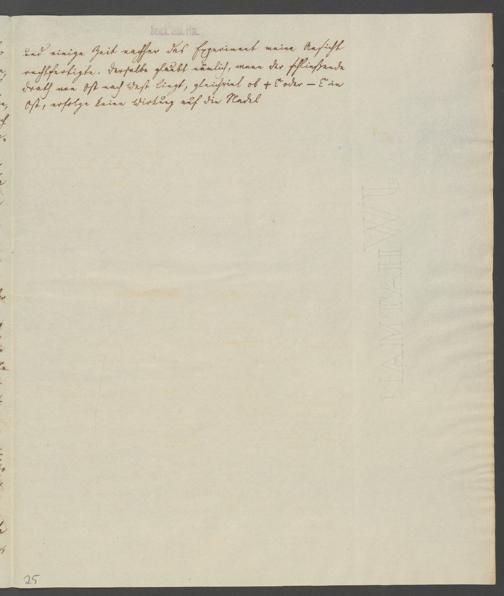 und einige Zeit nachher das Experiment meine Ansicht
rechtfertigte. Derselbe glaubt nämlich, wenn der schließende
Drath von Ost nach West liegt, gleichviel ob + E oder — E in
Ost, erfolge keine Wirkung auf die Nadel
J WHATMAN
25